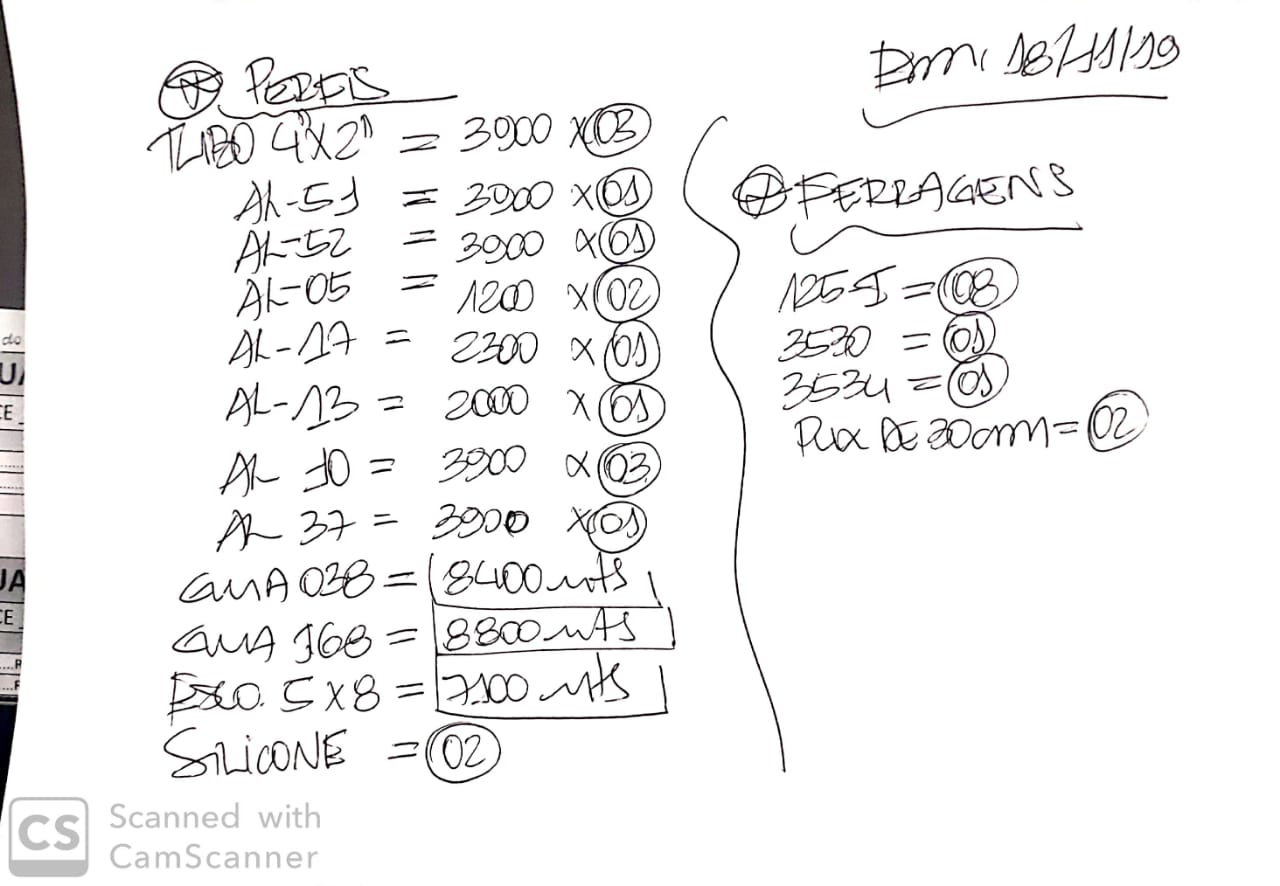 Em: 18/11/19
PERFIS
TUBO 4"X2" = 3900 X 03
AL-51 = 3900 X 01
AL-52 = 3900 X 01
AL-05 = 1200 X 02
AL-17 = 2300 X 01
AL-13 = 2000 X 01
AL 10 = 3900 X 03
AL 37 = 3900 X 01
GUA 038 = 8400 mts
GUA 168 = 8800 mts
5X8 = 7100 mts
SILICONE = 02
FERRAGENS
125 = 08
3530 = 01
3534 = 01
Pux DE 30cm = 02
CS Scanned with
CamScanner